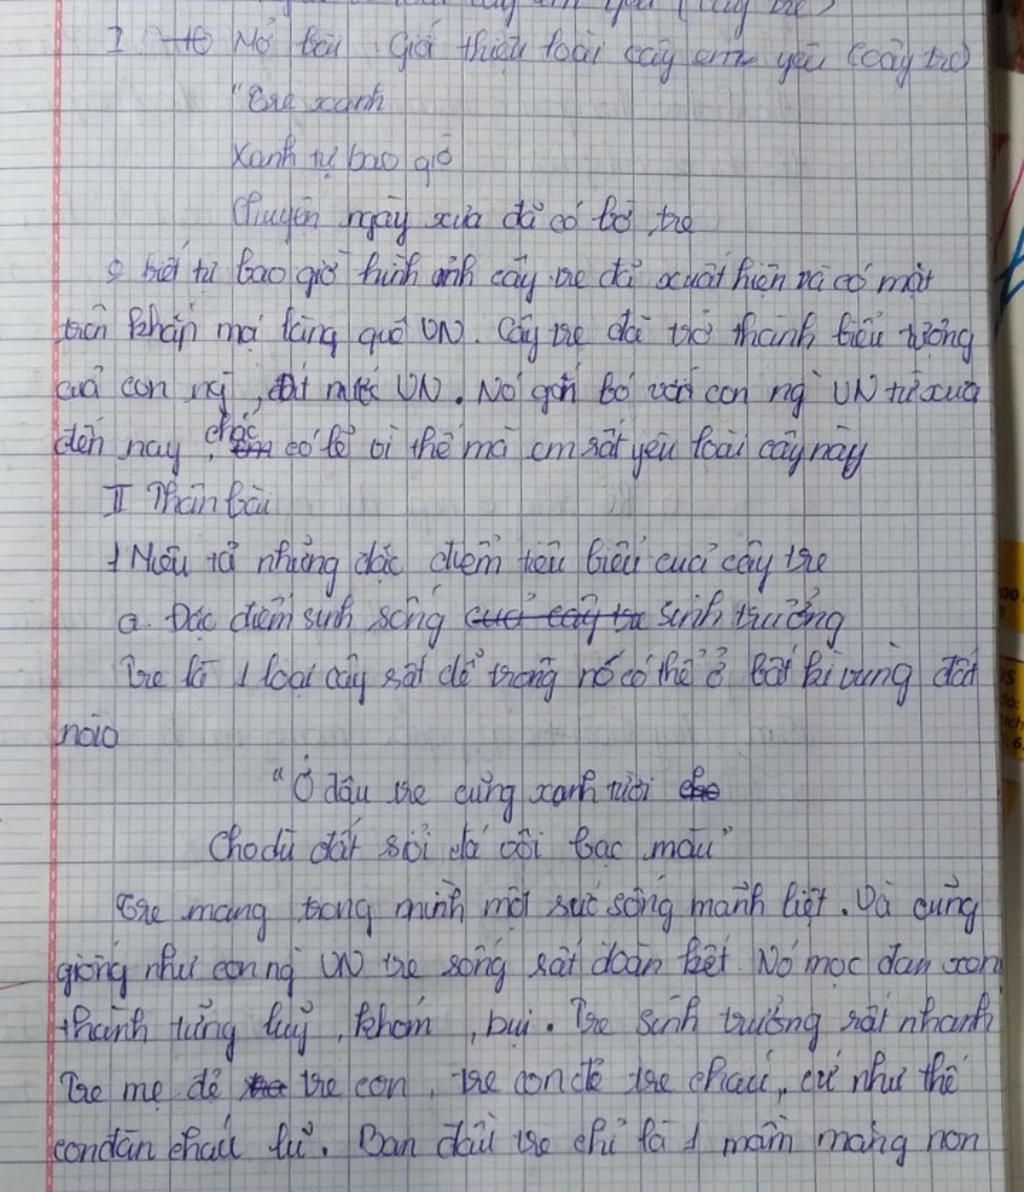 I Mở bài Giới thiệu loài cây em yêu (cây tre)
"Tre xanh
Xanh tự bao giờ
Chuyện ngày xưa đã có bờ tre
biết từ bao giờ hình ảnh cây tre đã xuất hiện và có mặt
trên khắp mọi làng quê VN. Cây tre đã trở thành biểu tượng
của con ng, đất nước VN. Nó gắn bó với con ng VN từ xưa
đến nay, chắc có lẽ vì thế mà em rất yêu loài cây này
II Thân bài
1 Miêu tả những đặc điểm tiêu biểu của cây tre
a. Đặc điểm sinh sống sinh trưởng
Tre là 1 loại cây rất dễ trồng nó có thể ở bất kì vùng đất
nào
"Ở đâu tre cũng xanh tươi
Cho dù đất sỏi đá vôi bạc màu"
Tre mang trong mình một sức sống mãnh liệt. Và cũng
giống như con ng VN tre sống rất đoàn kết. Nó mọc đan xen
thành từng luỹ, khóm, bụi. Tre sinh trưởng rất nhanh
Tre mẹ đẻ tre con, tre con đẻ tre cháu, cứ như thế
con đàn cháu lũ. Ban đầu tre chỉ là 1 mầm măng non